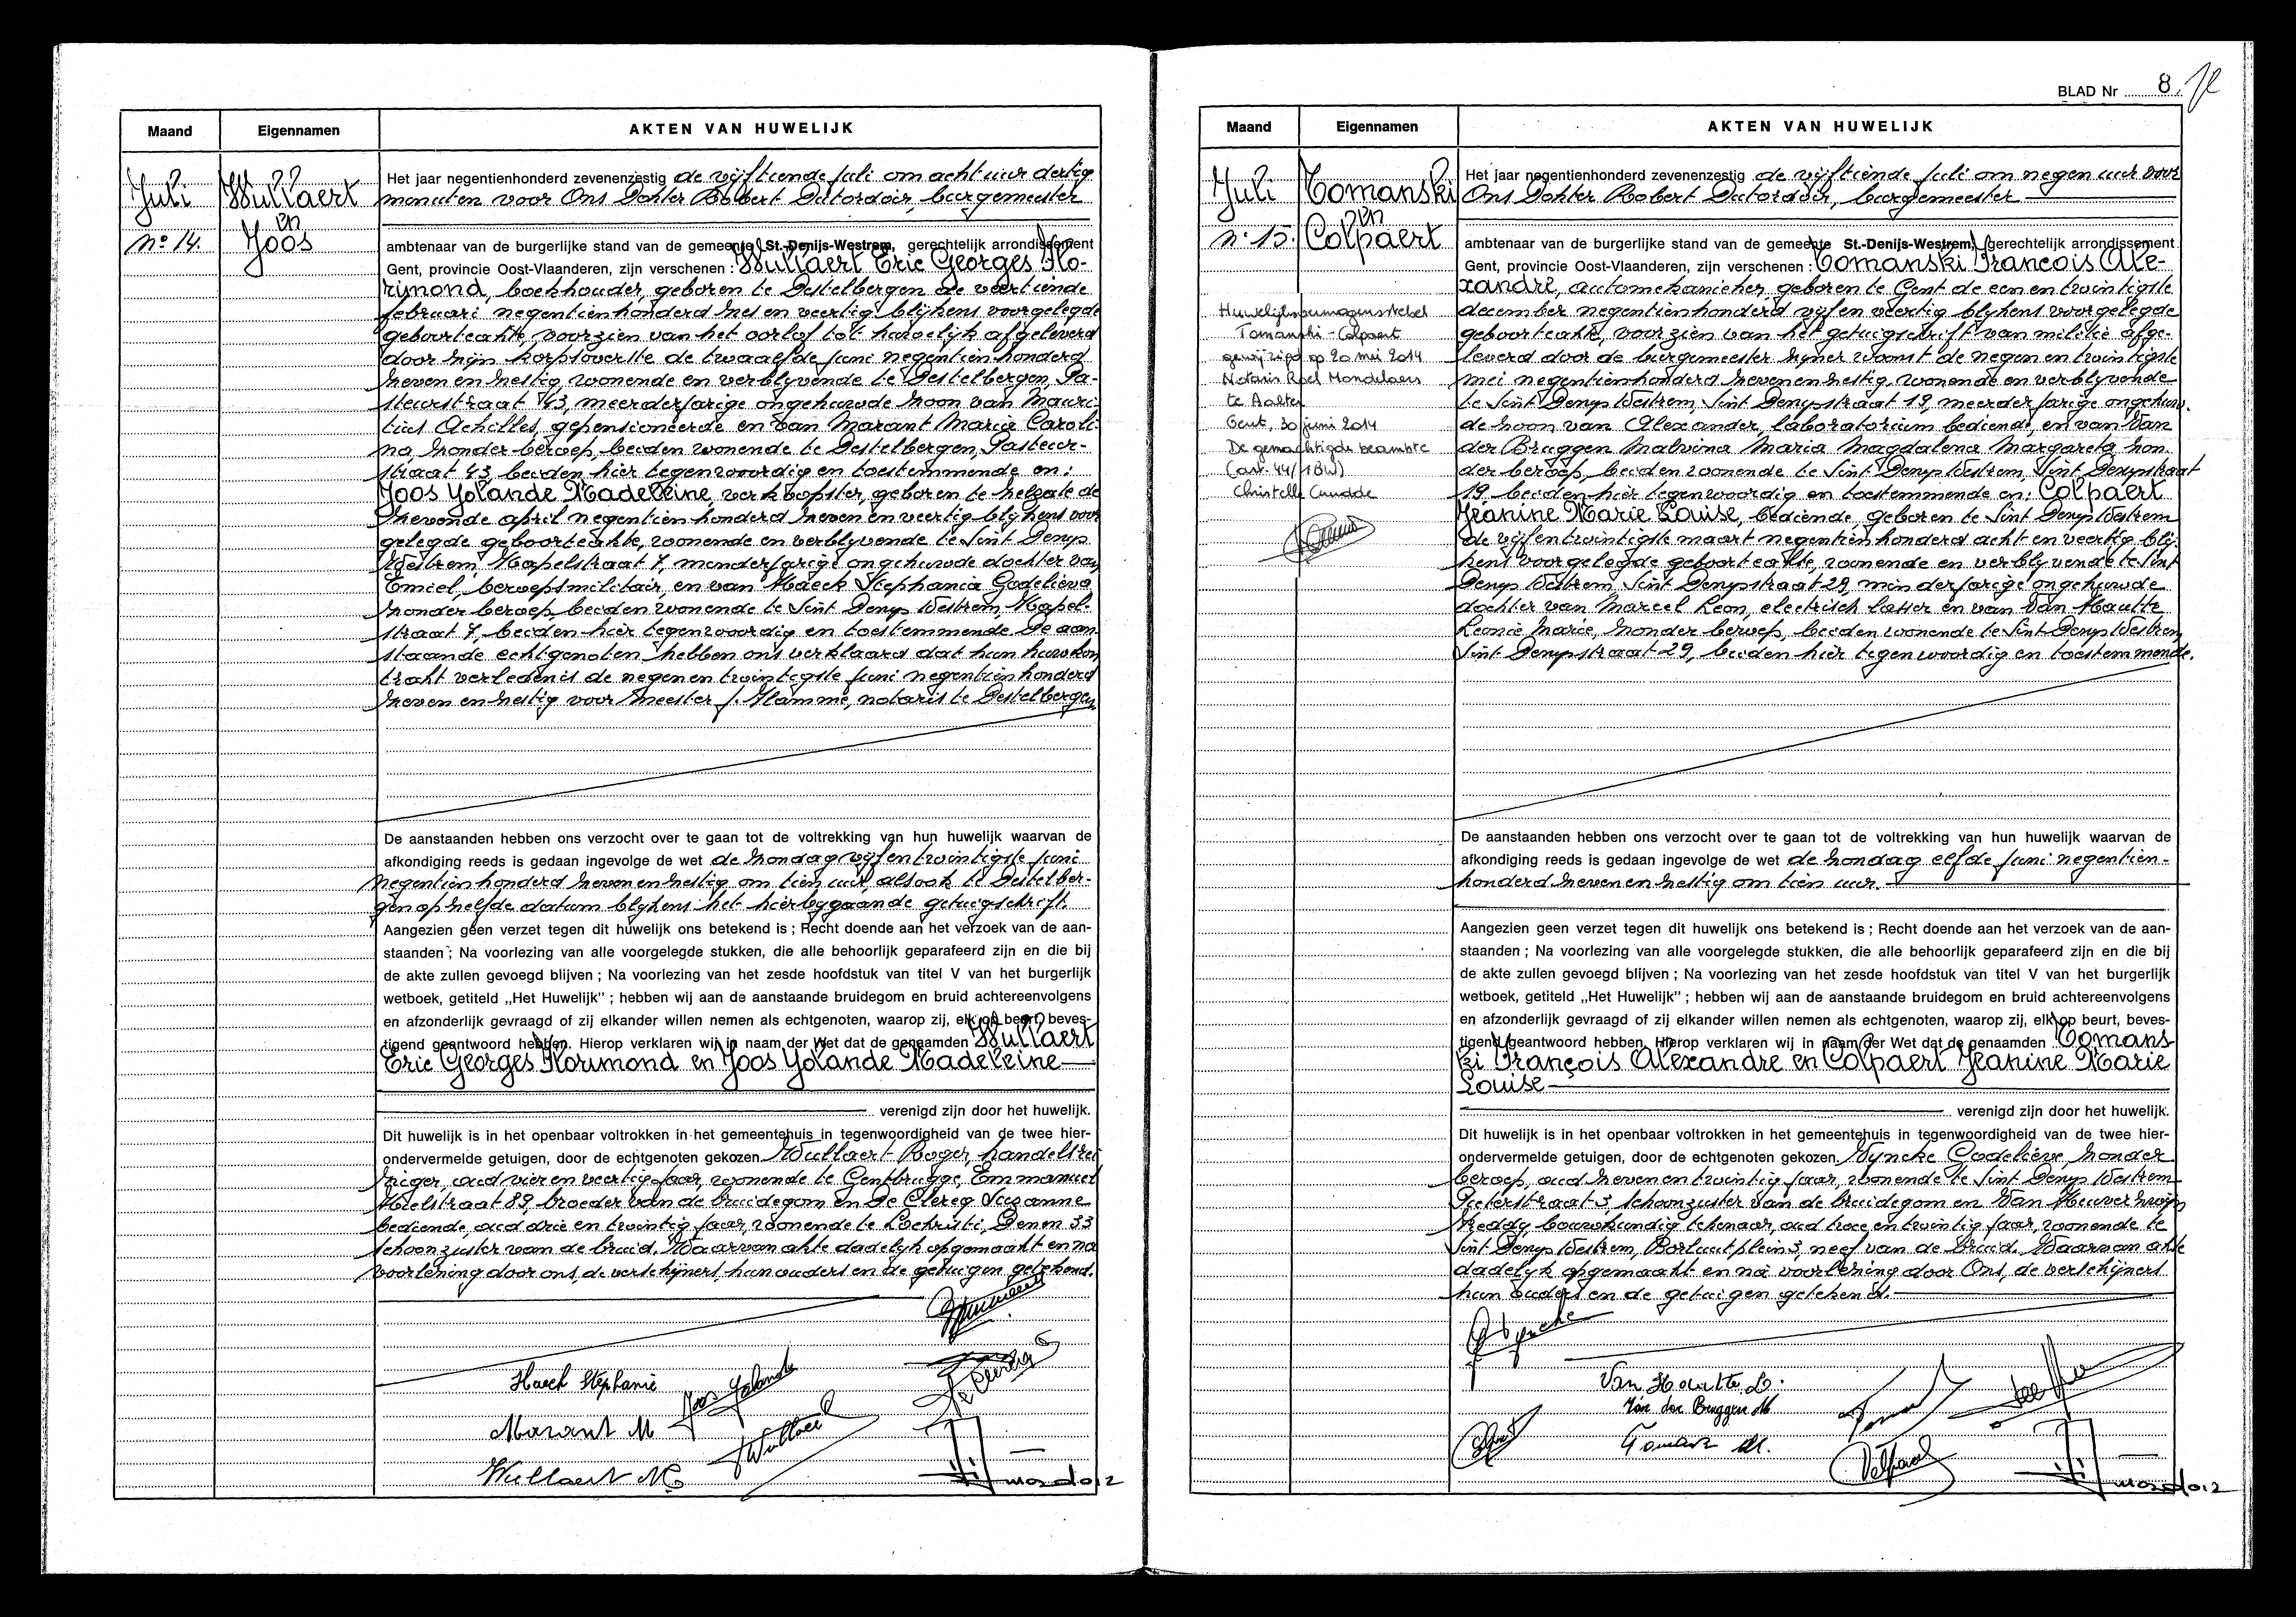 Maand
Eigennamen
AKTEN VAN HUWELIJK
Juli
Wullaert
en
Joos
No 14.
Het jaar negentienhonderd zevenenzestig de vijftiende juli om acht uur dertig
minuten voor Ons Dokter Robert Dutordoir, burgemeester
ambtenaar van de burgerlijke stand van de gemeente St.-Denijs-Westrem, gerechtelijk arrondissement
Gent, provincie Oost-Vlaanderen, zijn verschenen : Wullaert Eric Georges Flo-
rimond, boekhouder, geboren te Destelbergen de veertiende
februari negentienhonderd zes en veertig blijkens voorgelegde
geboorteakte, voorzien van het oorlof tot huwelijk afgeleverd
door zijn korpsoverste de twaalfde juni negentienhonderd
zeven en zestig, wonende en verblyvende te Destelbergen, Pa-
steurstraat 43, meerderjarige ongehuwde zoon van Mauri-
tius Achilles, gepensioneerde en van Marant Maria Caroli-
na, zonder beroep, beiden wonende te Destelbergen, Pasteur-
straat 43, beiden hier tegenwoordig en toestemmende en :
Joos Yolande Madeleine, verkoopster, geboren te Zelzate de
zevende april negentienhonderd zeven en veertig blykens voor
gelegde geboorteakte, wonende en verblyvende te Sint Denys
Westrem, Kapelstraat 7, minderjarige ongehuwde dochter van
Emiel, beroepsmilitair, en van Haeck Stephania Godelieva
zonder beroep, beiden wonende te Sint Denys Westrem, Kapel-
straat 7, beiden hier tegenwoordig en toestemmende De aan-
staande echtgenoten hebben ons verklaard dat hun huwkon
trakt verleden is de negen en twintigste juni negentienhonderd
zeven en zestig voor meester J. Flamme, notaris te Destelbergen
De aanstaanden hebben ons verzocht over te gaan tot de voltrekking van hun huwelijk waarvan de
afkondiging reeds is gedaan ingevolge de wet de zondag vijf en twintigste juni
negentienhonderd zeven en zestig om tien uur, alsook te Destelber-
gen op zelfde datum blykens het hierbygaande getuigschrift.
Aangezien geen verzet tegen dit huwelijk ons betekend is ; Recht doende aan het verzoek van de aan-
staanden ; Na voorlezing van alle voorgelegde stukken, die alle behoorlijk geparafeerd zijn en die bij
de akte zullen gevoegd blijven ; Na voorlezing van het zesde hoofdstuk van titel V van het burgerlijk
wetboek, getiteld „Het Huwelijk" ; hebben wij aan de aanstaande bruidegom en bruid achtereenvolgens
en afzonderlijk gevraagd of zij elkander willen nemen als echtgenoten, waarop zij, elk op beurt, beves-
tigend geantwoord hebben. Hierop verklaren wij in naam der Wet dat de genaamden Wullaert
Eric Georges Florimond en Joos Yolande Madeleine
verenigd zijn door het huwelijk.
Dit huwelijk is in het openbaar voltrokken in het gemeentehuis in tegenwoordigheid van de twee hier-
ondervermelde getuigen, door de echtgenoten gekozen Wullaert Roger, handelsrei
ziger, oud vier en veertig jaar, wonende te Gentbrugge, Emmanuel
Hielstraat 89, broeder van de bruidegom en De Clercq Suzanne
bediende, oud drie en twintig jaar, wonende te Lochristi, Denen 33
schoonzuster van de bruid. Waarvan akte dadelyk opgemaakt en na
voorlezing door ons de verschijners, hun ouders en de getuigen getekend.
Haeck Stephanie
Joos Yolande
Marant M
Wullaert M
BLAD Nr 8
Maand
Eigennamen
AKTEN VAN HUWELIJK
Juli
Tomanski
en
Colpaert
No 15.
Huwelijksvermogensstelsel
Tomanski - Colpaert
gewijzigd op 20 mei 2014
Notaris Roel Mondelaers
te Aalter
Gent, 30 juni 2014
De gemachtigde beambte
(art. 44/1 BW)
Christelle
Het jaar negentienhonderd zevenenzestig de vijftiende juli om negen uur voor
Ons Dokter Robert Dutordoir, burgemeester
ambtenaar van de burgerlijke stand van de gemeente St.-Denijs-Westrem, gerechtelijk arrondissement
Gent, provincie Oost-Vlaanderen, zijn verschenen : Tomanski François Ale-
xandre, automekanieker, geboren te Gent de een en twintigste
december negentienhonderd vijf en veertig blykens voorgelegde
geboorteakte, voorzien van het getuigschrift van militie afge-
leverd door de burgemeester zijner woonst de negen en twintigste
mei negentienhonderd zeven en zestig, wonende en verblyvende
te Sint Denys Westrem, Sint Denysstraat 19, meerderjarige ongehuw-
de zoon van Alexander, laboratorium bediende, en van Van
der Bruggen Malvina Maria Magdalena Margareta zon-
der beroep, beiden wonende te Sint Denys Westrem, Sint Denysstraat
19 beiden hier tegenwoordig en toestemmende en : Colpaert
Jeanine Marie Louise, bediende, geboren te Sint Denys Westrem
de vijf en twintigste maart negentienhonderd acht en veertig bly-
kens voorgelegde geboorteakte, wonende en verblyvende te Sint
Denys Westrem, Sint Denysstraat 29, minderjarige ongehuwde
dochter van Marcel Leon, electrisch lasser en van Van Houtte
Leonie Marie, zonder beroep, beiden wonende te Sint Denys Westrem
Sint Denysstraat 29, beiden hier tegenwoordig en toestemmende.
De aanstaanden hebben ons verzocht over te gaan tot de voltrekking van hun huwelijk waarvan de
afkondiging reeds is gedaan ingevolge de wet de zondag elfde juni negentien-
honderd zeven en zestig om tien uur.
Aangezien geen verzet tegen dit huwelijk ons betekend is ; Recht doende aan het verzoek van de aan-
staanden ; Na voorlezing van alle voorgelegde stukken, die alle behoorlijk geparafeerd zijn en die bij
de akte zullen gevoegd blijven ; Na voorlezing van het zesde hoofdstuk van titel V van het burgerlijk
wetboek, getiteld „Het Huwelijk" ; hebben wij aan de aanstaande bruidegom en bruid achtereenvolgens
en afzonderlijk gevraagd of zij elkander willen nemen als echtgenoten, waarop zij, elk op beurt, beves-
tigend geantwoord hebben. Hierop verklaren wij in naam der Wet dat de genaamden Tomans
ki François Alexandre en Colpaert Jeanine Marie
Louise
verenigd zijn door het huwelijk.
Dit huwelijk is in het openbaar voltrokken in het gemeentehuis in tegenwoordigheid van de twee hier-
ondervermelde getuigen, door de echtgenoten gekozen. Wyncke Godelieve, zonder
beroep, oud zeven en twintig jaar, wonende te Sint Denys Westrem
Pieterstraat 3, schoonzuster van de bruidegom en Van Heuverzwijn
Freddy, bouwkundig tekenaar, oud twee en twintig jaar, wonende te
Sint Denys Westrem, Borluutplein 3, neef van de bruid. Waarvan akte
dadelyk opgemaakt en na voorlezing door Ons, de verschijners
hun ouders en de getuigen getekend.
Van Houtte L.
Van der Bruggen M